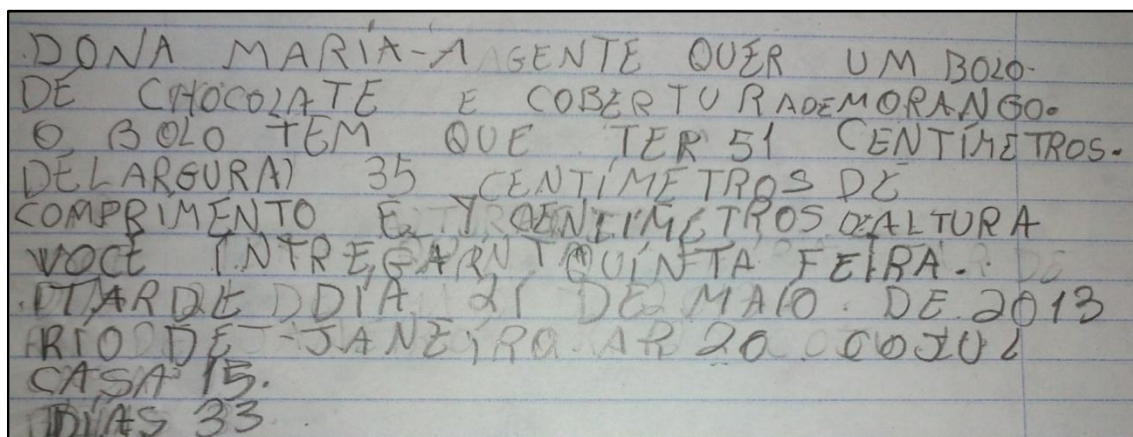 DONA MARIA-A AGENTE QUER UM BOLO.
DE CHOCOLATE E COBERTURA DE MORANGO.
O BOLO TEM QUE TER 51 CENTÍMETROS.
DE LARGURA) 35 CENTÍMETROS DE
COMPRIMENTO E 7 CENTÍMETROS DE ALTURA
VOCÊ INTREGAR QUINTA FEIRA.
TARDE DDIA 21 DE MAIO. DE 2013
RIO DE-JANEIRO AR 20
CASA 15.
33